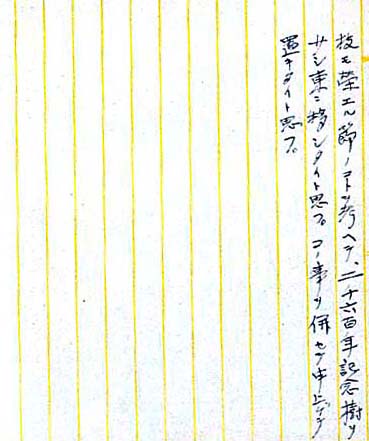 枝モ榮エル節ノコトヲ考ヘテ、二千六百年記念樹ヲ
サシ東ニ移シタイト思フ。コノ事ヲ併セテ申上ゲテ
置キタイト思フ。